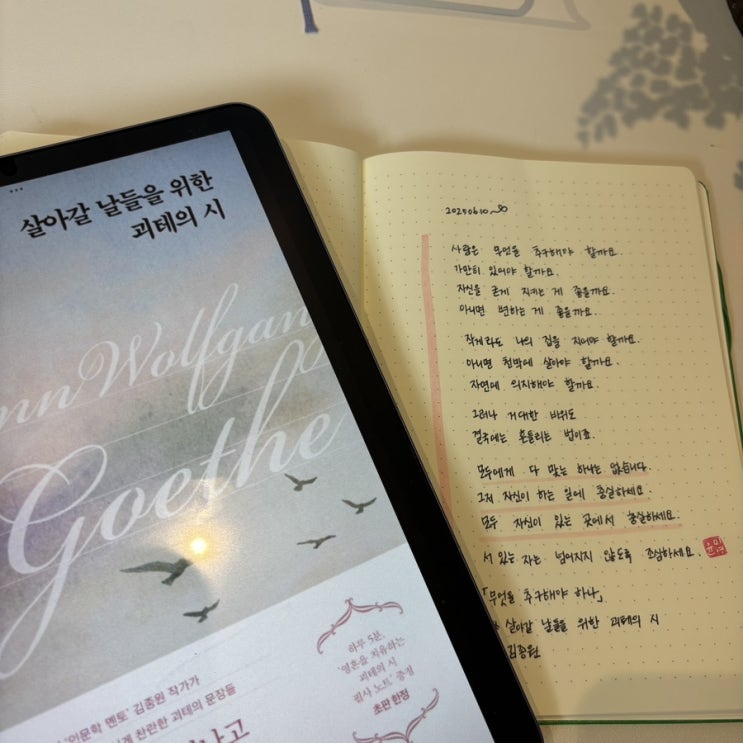 살아갈 날들을 위한
괴테의 시
nn Wolfgan
Goethe
하루 5분,
'영혼을 치유하는
괴테의 시
필사 노트' 증정
초판 한정
'인문학 멘토' 김종원 작가가
찬란한 괴테의 문장들
20250610
사람은 무엇을 추구해야 할까요.
가만히 있어야 할까요.
자신을 굳게 지키는 게 좋을까요.
아니면 변하는 게 좋을까요.
작게라도 나의 집을 지어야 할까요.
아니면 천막에 살아야 할까요.
자연에 의지해야 할까요.
그러나 거대한 바위도
결국에는 흔들리는 법이죠.
모두에게 다 맞는 하나는 없습니다.
그저 자신이 하는 일에 충실하세요.
모두 자신이 있는 곳에서 충실하세요.
서 있는 자는 넘어지지 않도록 조심하세요.
「무엇을 추구해야 하나」
살아갈 날들을 위한 괴테의 시
김종원